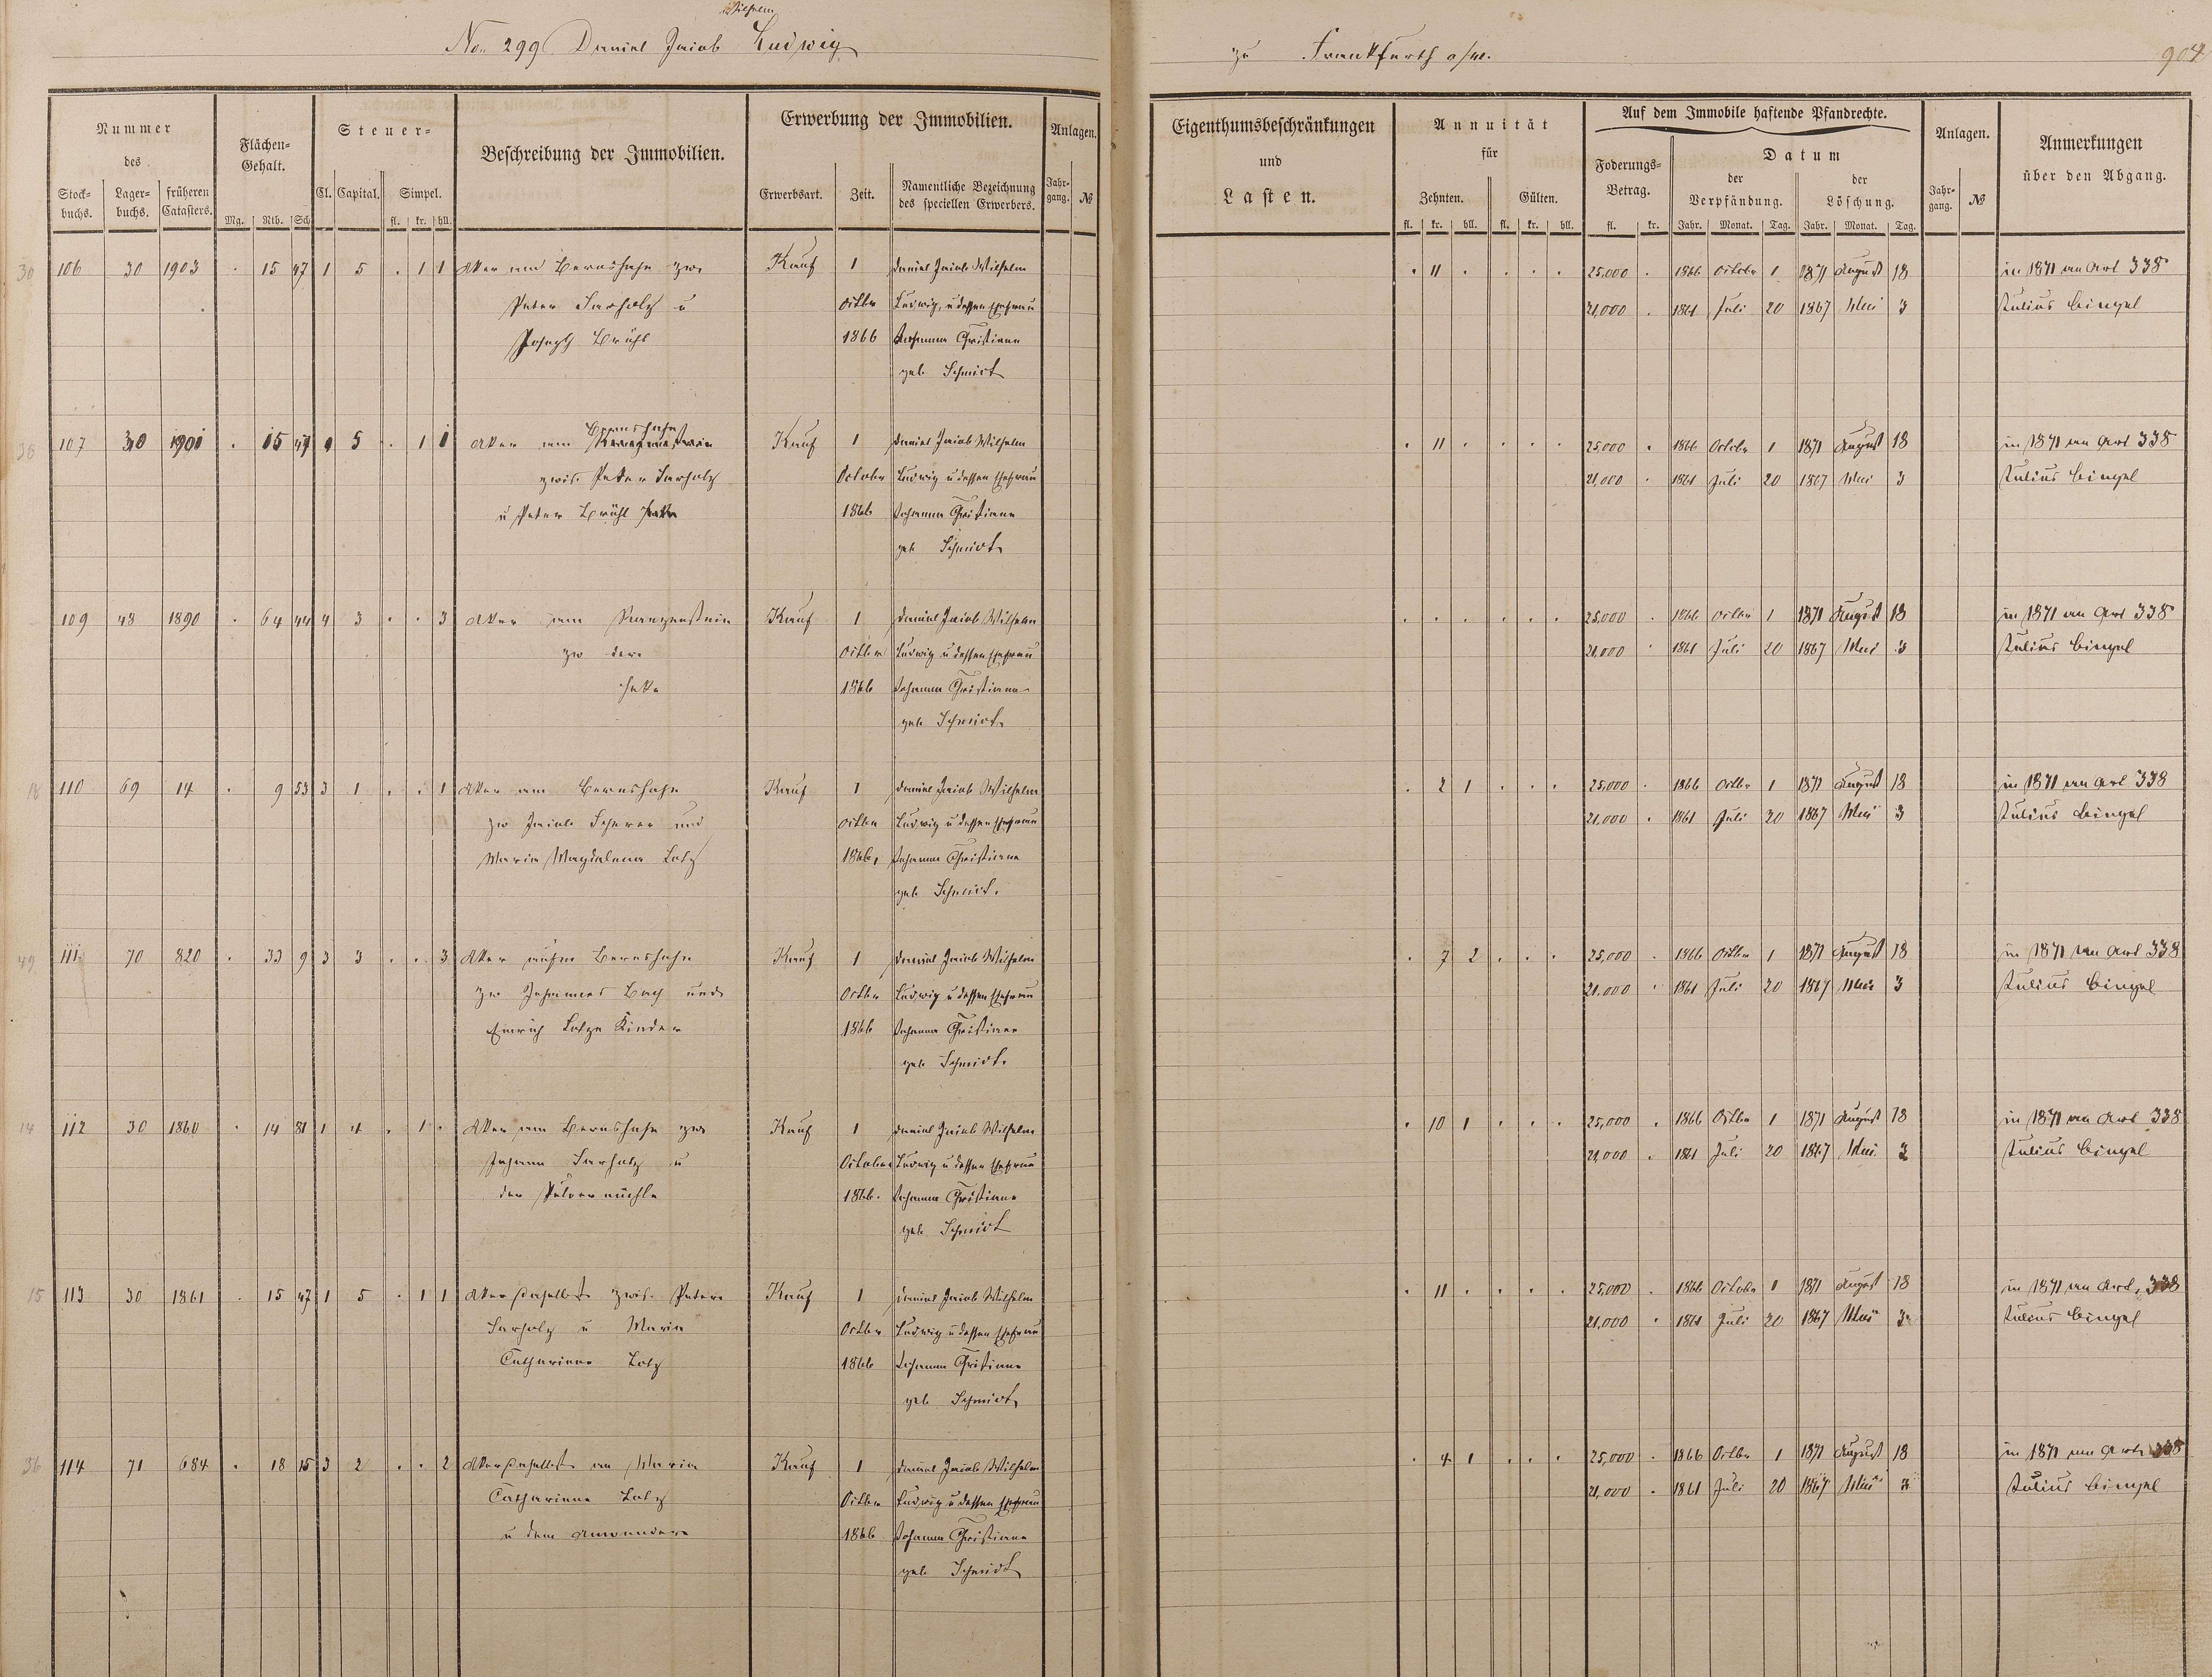 Wilhelm
No. 299 Daniel Jacob Ludwig
zu Frankfurth a/M.
904
Nummer
des
Stock-
buchs.
Lager-
buchs.
früheren
Catasters.
Flächen-
Gehalt.
Mg. Rth. Sch.
Steuer-
Cl. Capital. Simpel.
fl. kr. hll.
Beschreibung der Immobilien.
Erwerbung der Immobilien.
Erwerbsart. Zeit.
Namentliche Bezeichnung
des speciellen Erwerbers.
Anlagen.
Jahr-
gang. №
Eigenthumsbeschränkungen
und
Lasten.
Annuität
für
Zehnten. Gülten.
fl. kr. hll. fl. kr. hll.
Auf dem Immobile haftende Pfandrechte.
Foderungs-
Betrag.
fl. kr.
Datum
der
Verpfändung.
der
Löschung.
Jahr. Monat. Tag. Jahr. Monat. Tag.
Anlagen.
Jahr-
gang. №
Anmerkungen
über den Abgang.
30 106 30 1903 . 15 47 1 5 . 1 1 Acker am Bernshahn zw. Kauf 1 Daniel Jacob Wilhelm . 11 . . . . 25,000 . 1866 Octobr 1 1871 August 18 in 1871 an Art 338
Peter Sarholz u Octbr Ludwig, u dessen Ehefrau 21,000 . 1861 Juli 20 1867 Mai 3 Julius Bingel
Joseph Brühl 1866 Johanna Christiane
geb. Schmidt
30 107 30 1901 . 15 47 1 5 . 1 1 Acker am Bernshahn Kauf 1 Daniel Jacob Wilhelm . 11 . . . . 25,000 . 1866 Octobr 1 1871 August 18 in 1871 an Art 338
zwis. Peter Sarholz October Ludwig u dessen Ehefrau 21,000 . 1861 Juli 20 1867 Mai 3 Julius Bingel
u Peter Brühl 1866 Johanna Christiane
geb. Schmidt
109 48 1890 . 64 44 4 3 . . 3 Acker am Kauf 1 Daniel Jacob Wilhelm . . . . . . 25,000 . 1866 Octbr 1 1871 August 18 in 1871 an Art 338
zw der Octber Ludwig u dessen Ehefrau 21,000 . 1861 Juli 20 1867 Mai 3 Julius Bingel
1866 Johanna Christiane
geb. Schmidt
18 110 69 14 . 9 53 3 1 . . 1 Acker am Bernshahn Kauf 1 Daniel Jacob Wilhelm . 2 1 . . . 25,000 . 1866 Octbr 1 1871 August 18 in 1871 an Art 338
zw Jacob Scherer und Octber Ludwig u dessen Ehefrau 21,000 . 1861 Juli 20 1867 Mai 3 Julius Bingel
Maria Magdalena Lotz 1866, Johanna Christiane
geb. Schmidt.
49 111. 70 820 . 33 9 3 3 . . 3 Acker aufm Bernshahn Kauf 1 Daniel Jacob Wilhelm . 7 2 . . . 25,000 . 1866 Octber 1 1871 August 18 in 1871 an Art 338
zw Johannes Bach und Octbr Ludwig u dessen Ehefrau 21,000 . 1861 Juli 20 1867 Mai 3 Julius Bingel
Lotze Kinder 1866 Johanna Christiane
geb. Schmidt.
14 112 30 1860 . 14 81 1 4 . 1 . Acker am Bernshahn zw Kauf 1 Daniel Jacob Wilhelm . 10 1 . . . 25,000 . 1866 Octbr 1 1871 August 18 in 1871 an Art 338
Johann Sarholz u October Ludwig u dessen Ehefrau 21,000 . 1861 Juli 20 1867 Mai 3 Julius Bingel
der Pulvermühle 1866. Johanna Christiane
geb. Schmidt
15 113 30 1861 . 15 47 1 5 . 1 1 Acker daselbst zwis. Peter Kauf 1 Daniel Jacob Wilhelm . 11 . . . . 25,000 . 1866 October 1 1871 August 18 in 1871 an Art. 338
Sarholz u Maria Octber Ludwig u dessen Ehefrau 21,000 . 1861 Juli 20 1867 Mai 3 Julius Bingel
Catharine Lotz 1866 Johanna Christiane
geb. Schmidt
36 114 71 684 . 18 15 3 2 . . 2 Acker daselbst an Maria Kauf 1 Daniel Jacob Wilhelm . 4 1 . . . 25,000 . 1866 Octbr 1 1871 August 18 in 1871 an Art 338
Catharine Lotz Octber Ludwig u dessen Ehefrau 21,000 . 1861 Juli 20 1867 Mai 3 Julius Bingel
u dem Anwender 1866 Johanna Christiane
geb. Schmidt